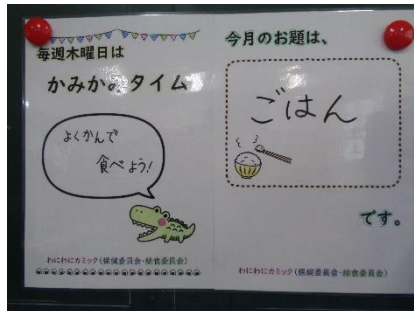 毎週木曜日は
かみかみタイム
よくかんで
食べよう!
わにわにカミック(保健委員会・給食委員会)
今月のお題は、
ごはん
です。
わにわにカミック(保健委員会・給食委員会)